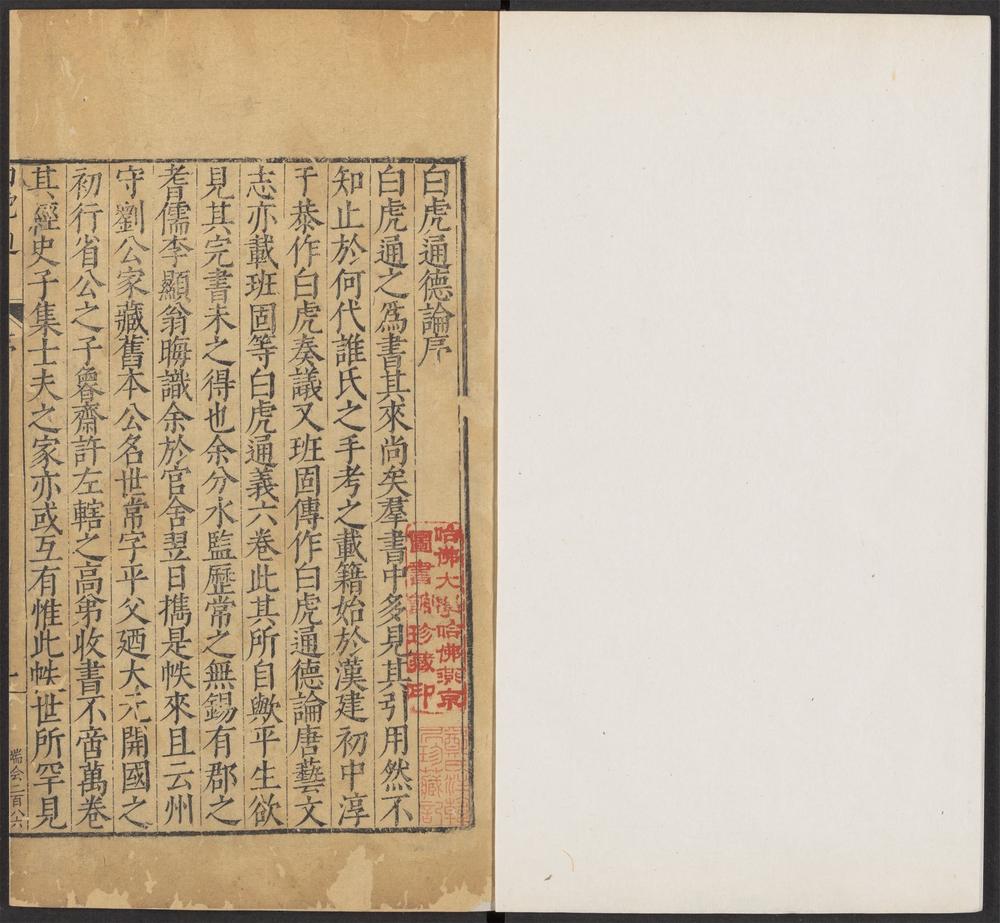 白虎通德論序
白虎通之爲書其來尚矣羣書中多見其引用然不
知止於何代誰氏之手考之載籍始於漢建初中淳
于恭作白虎奏議又班固傳作白虎通德論唐藝文
志亦載班固等白虎通義六卷此其所自歟平生欲
見其完書未之得也余分水監歷常之無錫有郡之
耆儒李顯翁晦識余於官舍翌日擕是帙來且云州
守劉公家藏舊本公名世常字平父廼大元開國之
初行省公之子魯齋許左轄之高弟收書不啻萬卷
其經史子集士夫之家亦或互有惟此帙世所罕見
端会二百八六
哈佛大學哈佛燕京
圖書館珍藏印